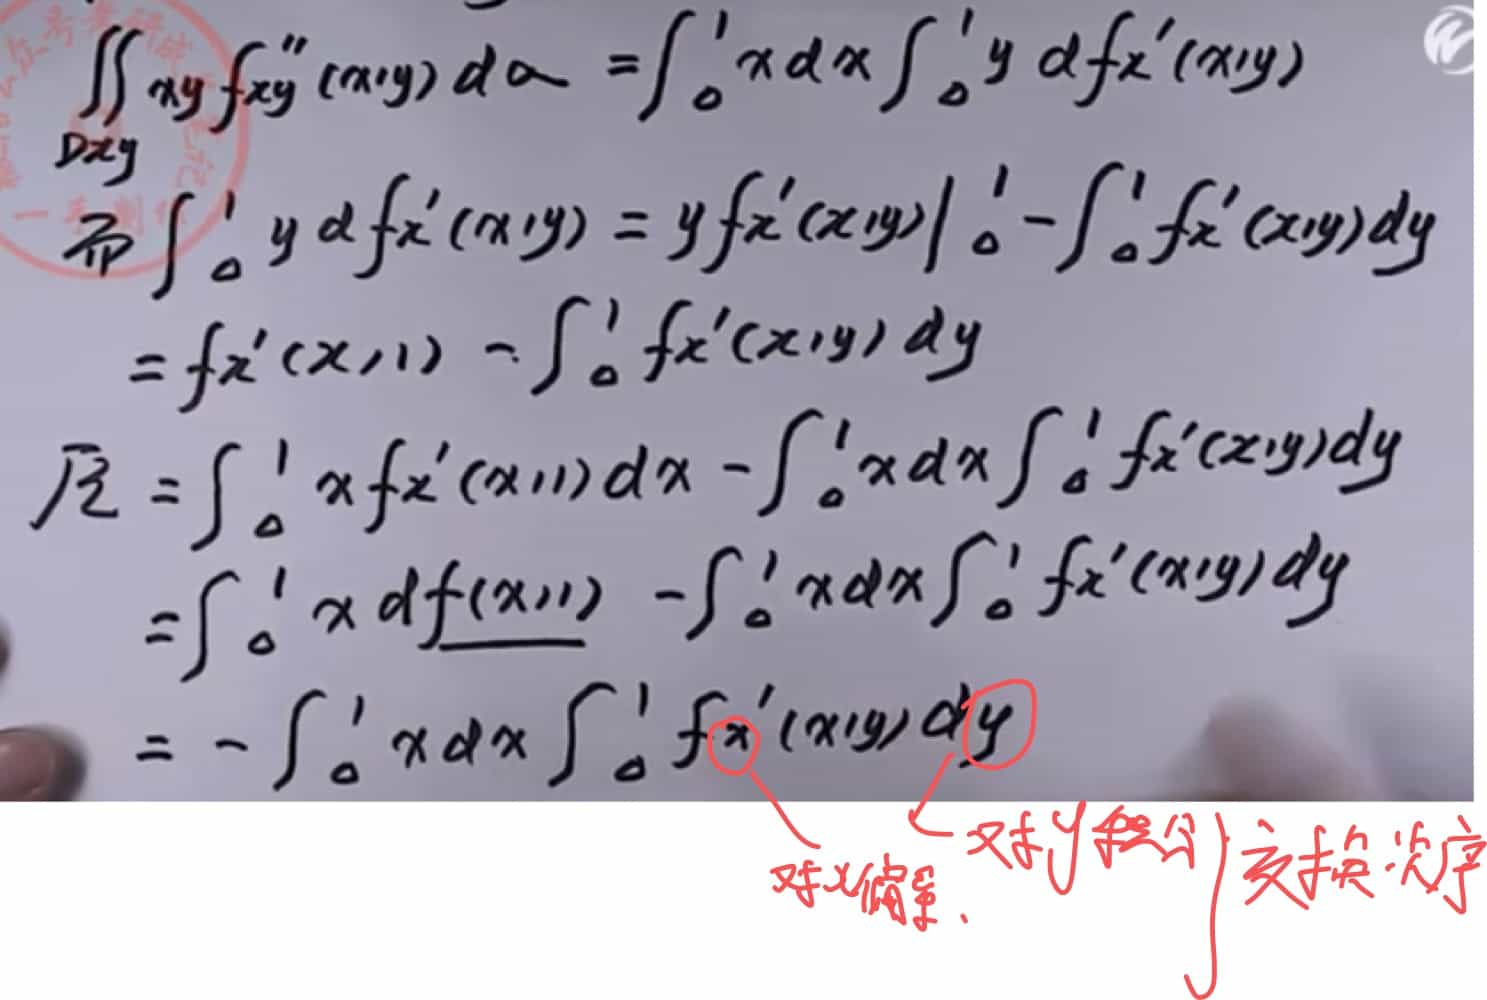 ∬_{Dxy} xy f_{xy}''(x,y) dσ = ∫₀¹ x dx ∫₀¹ y d f_x'(x,y)
而 ∫₀¹ y d f_x'(x,y) = y f_x'(x,y)|₀¹ - ∫₀¹ f_x'(x,y) dy
= f_x'(x,1) - ∫₀¹ f_x'(x,y) dy
原 = ∫₀¹ x f_x'(x,1) dx - ∫₀¹ x dx ∫₀¹ f_x'(x,y) dy
= ∫₀¹ x d f(x,1) - ∫₀¹ x dx ∫₀¹ f_x'(x,y) dy
= - ∫₀¹ x dx ∫₀¹ f_x'(x,y) dy
对y积分
交换次序
对x偏导.